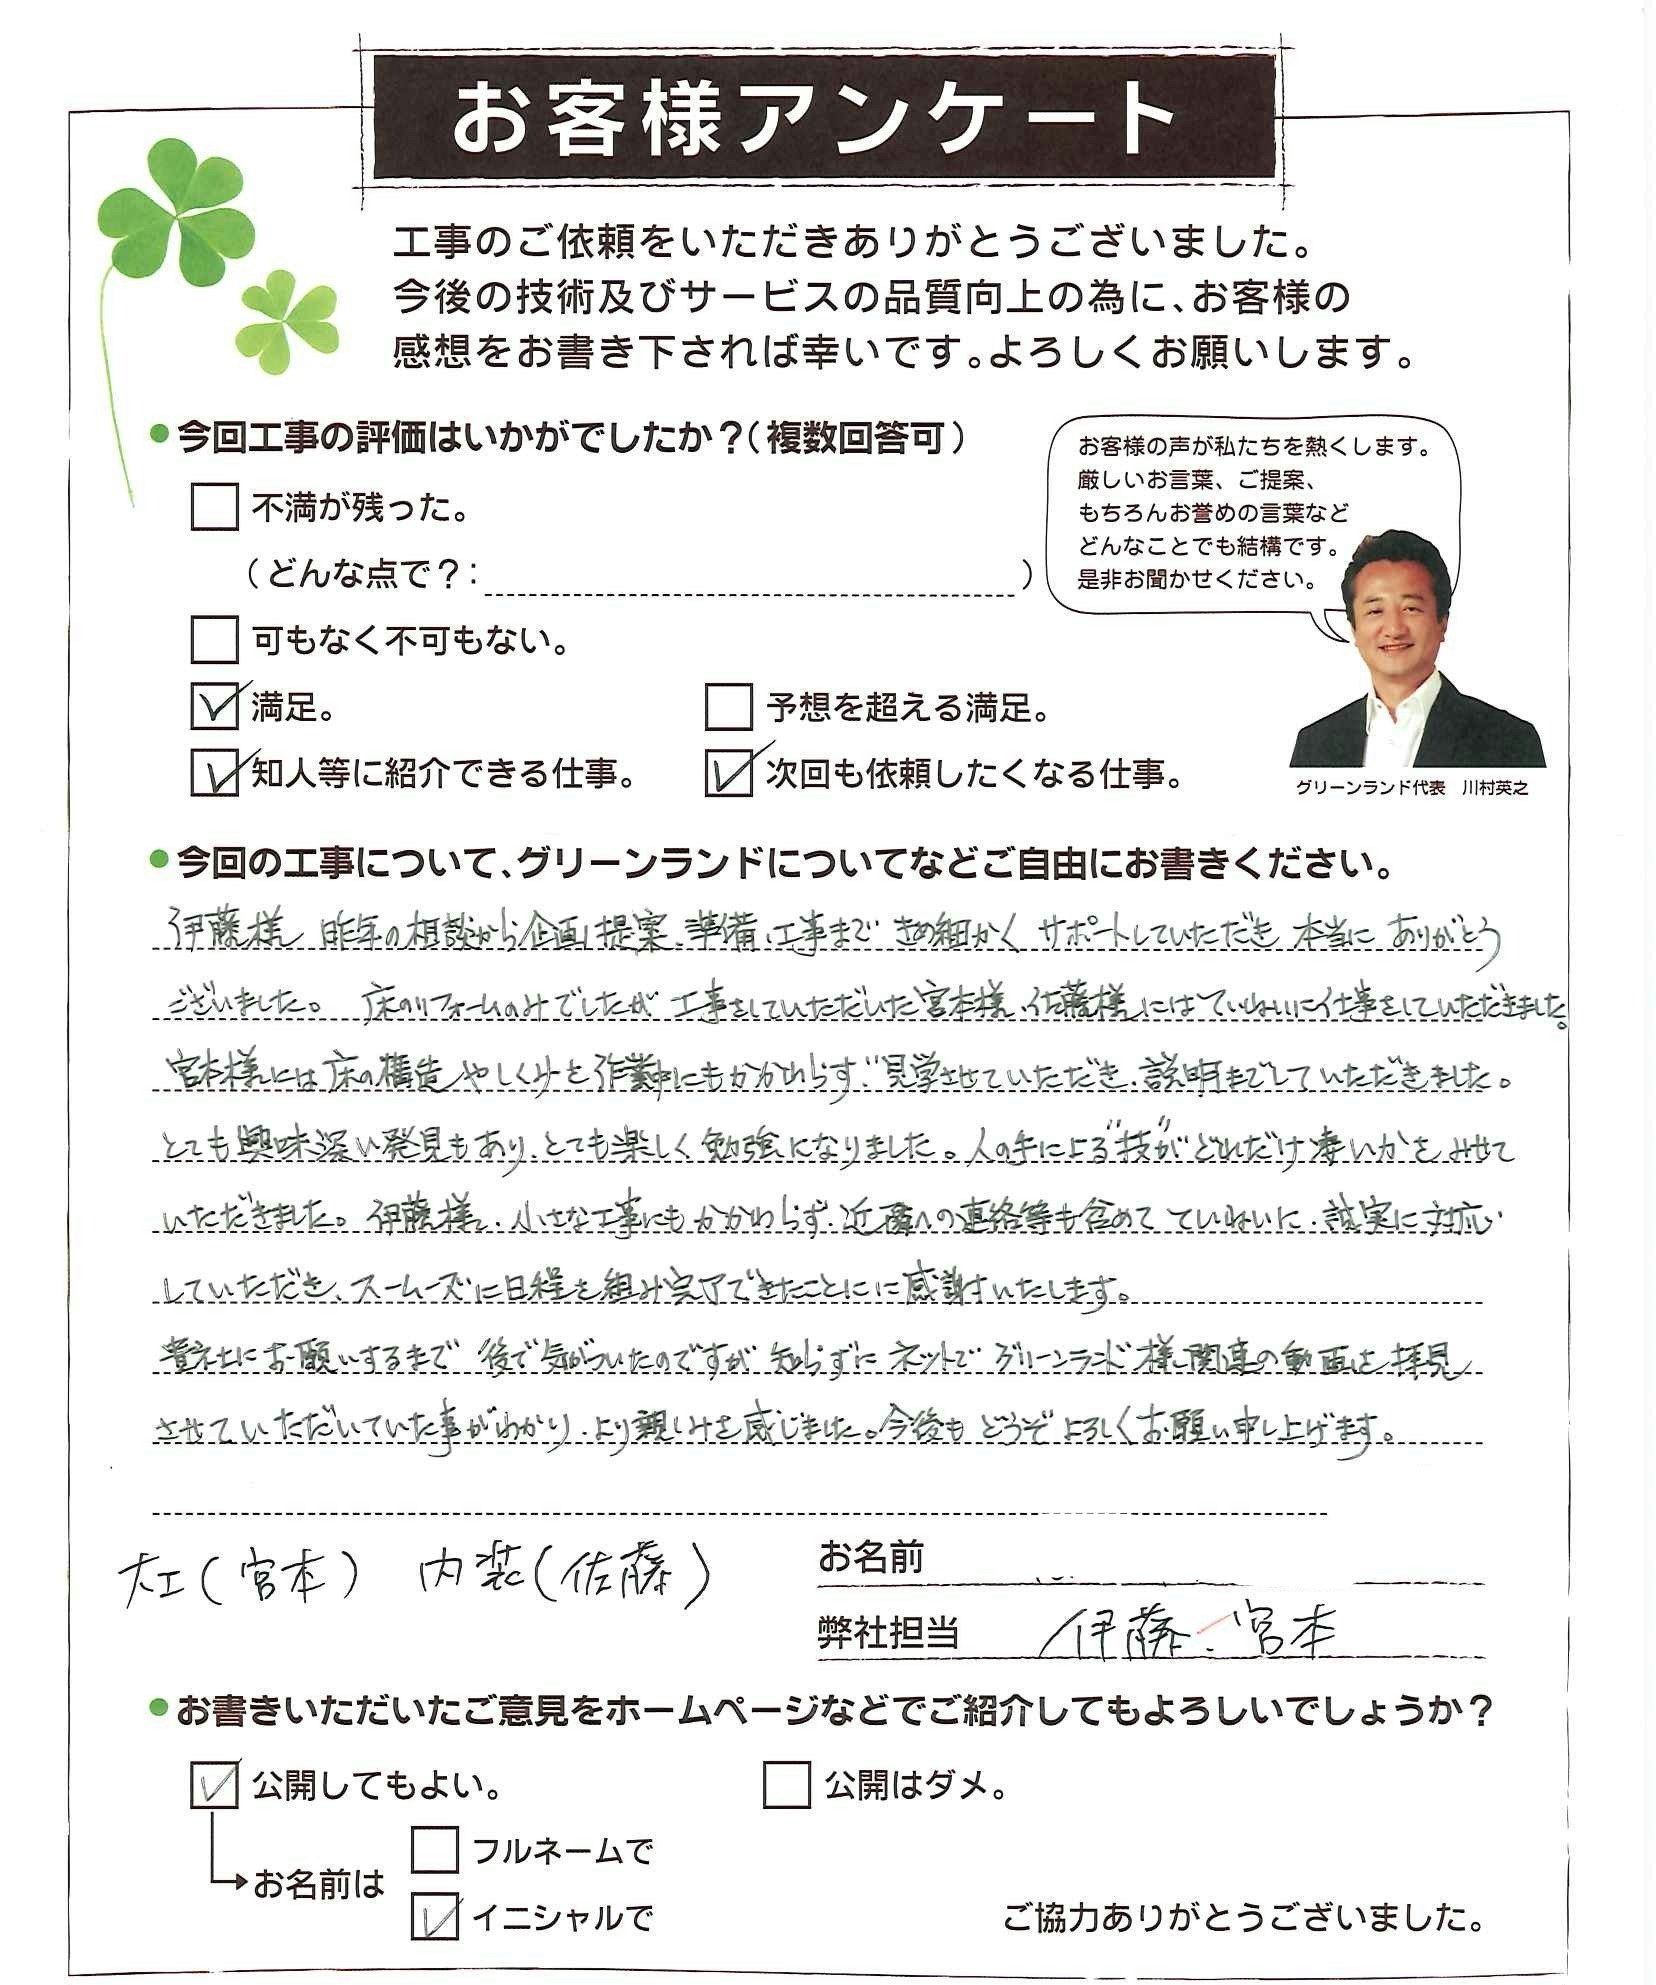 お客様アンケート
工事のご依頼をいただきありがとうございました。
今後の技術及びサービスの品質向上の為に、お客様の
感想をお書き下されば幸いです。よろしくお願いします。
●今回工事の評価はいかがでしたか？(複数回答可)
不満が残った。
(どんな点で？: )
可もなく不可もない。
満足。
予想を超える満足。
知人等に紹介できる仕事。
次回も依頼したくなる仕事。
お客様の声が私たちを熱くします。
厳しいお言葉、ご提案、
もちろんお誉めの言葉など
どんなことでも結構です。
是非お聞かせください。
グリーンランド代表 川村英之
●今回の工事について、グリーンランドについてなどご自由にお書きください。
伊藤様、昨年の相談から企画、提案、準備、工事まで きめ細かく サポートしていただき 本当に ありがとう
ございました。 床のリフォームのみでしたが 工事をしていただいた宮本様、佐藤様にはていねいに仕事をしていただきました。
宮本様には床の構造やしくみを作業中にもかかわらず、見学させていただき、説明までしていただきました。
とても興味深い発見もあり、とても楽しく勉強になりました。人の手による"技"がどれだけ凄いかをみせて
いただきました。伊藤様、小さな工事にもかかわらず、近隣への連絡等も含めて ていねいに、誠実に対応
していただき、スームーズに日程を組み完了できたことにに感謝いたします。
貴社にお願いするまで 後で気がついたのですが 知らずに ネットで グリーンランド様関連の動画を拝見
させていただいていた事がわかり、より親しみを感じました。今後も どうぞよろしくお願い申し上げます。
大工(宮本) 内装(佐藤)
お名前
弊社担当 伊藤、宮本
●お書きいただいたご意見をホームページなどでご紹介してもよろしいでしょうか？
公開してもよい。
公開はダメ。
お名前は
フルネームで
イニシャルで
ご協力ありがとうございました。